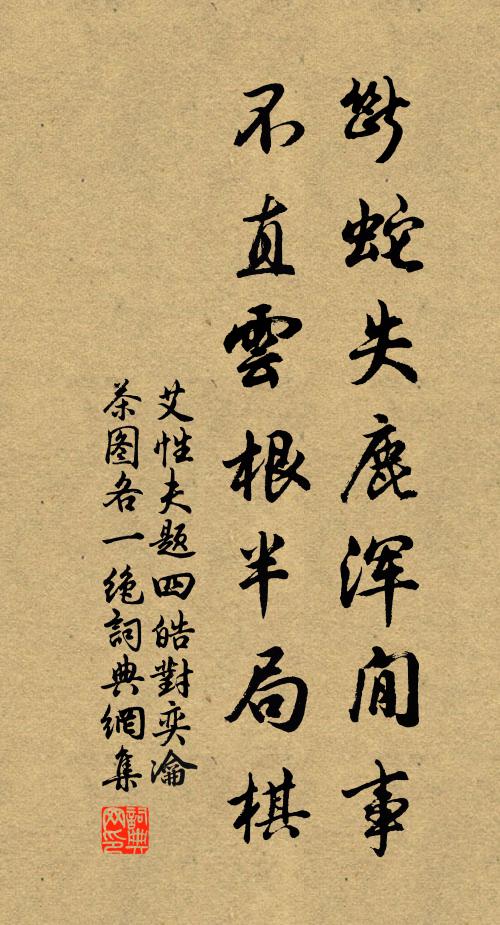 斷蛇失鹿浑閒事
不直雲根半局棋
艾性夫题四皓對奕瀹
茶图各一绝詞典網集
詞典网印